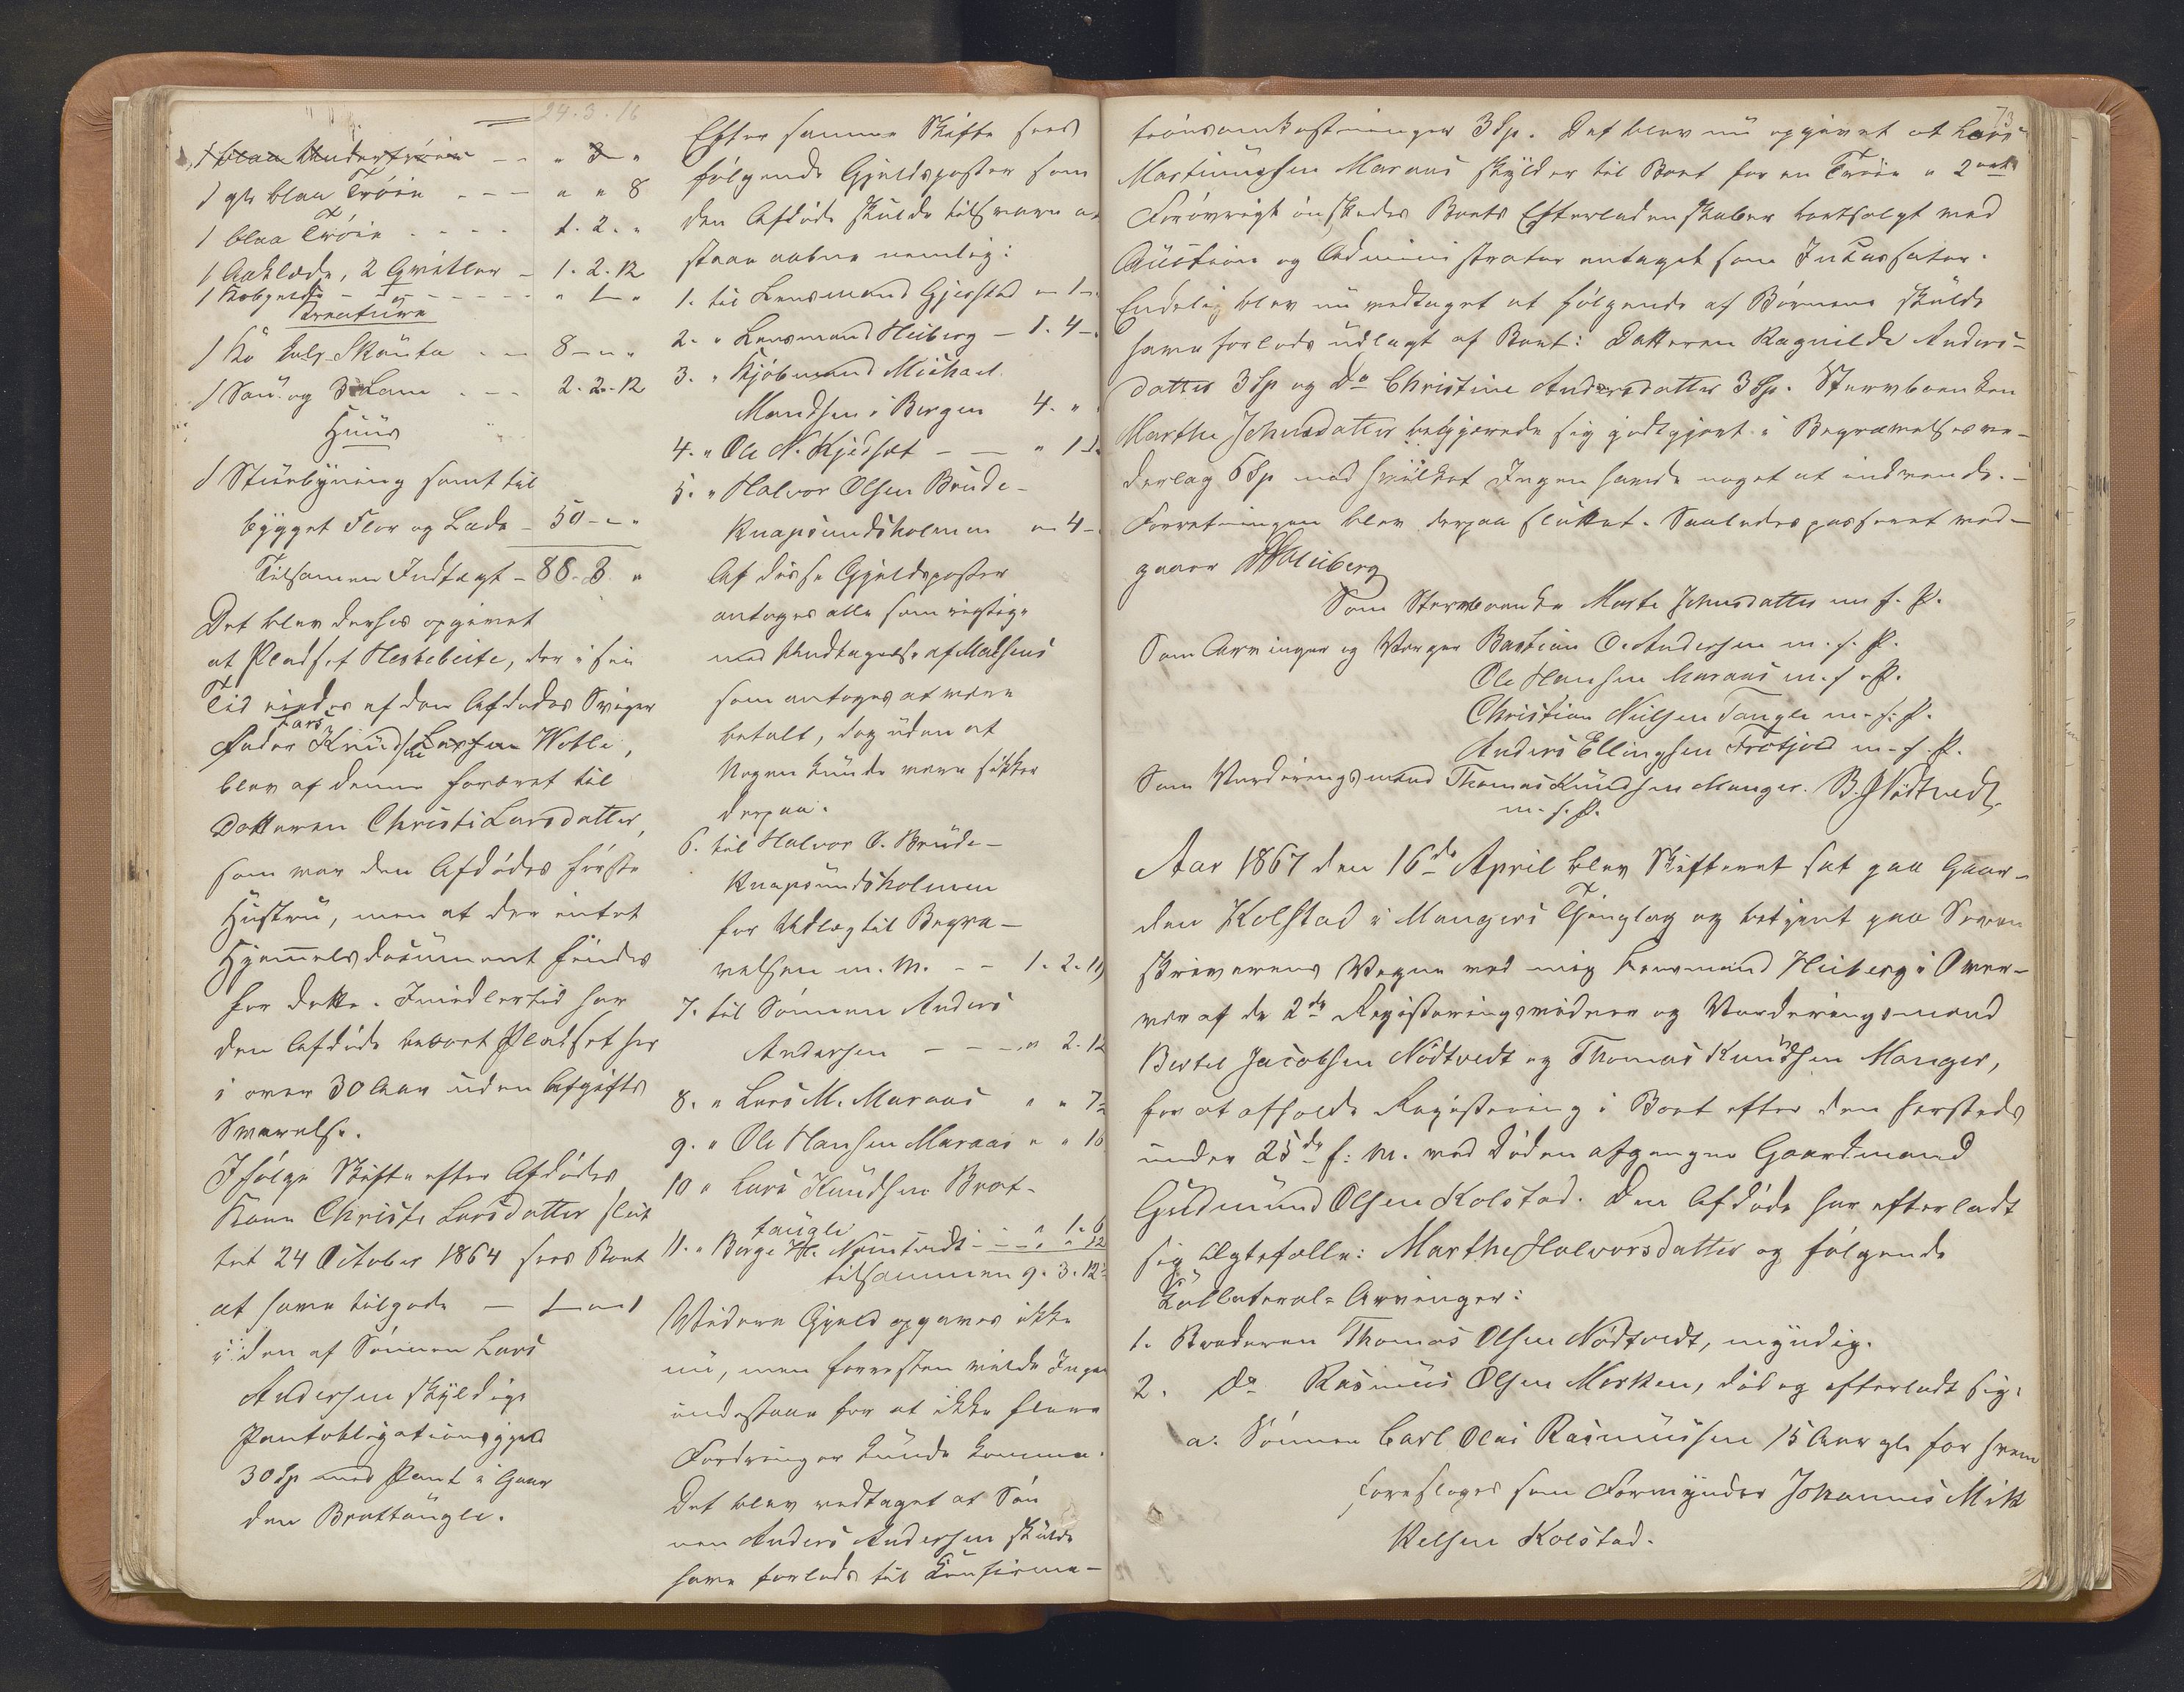 24.3.16
1 blaa Undertröie - - " 3 "
1 gl. blaa Tröie - - - " " 8
1 blaa Tröie - - - - 1. 2. "
1 Aaklæde, 2 Qvitler - 1. 2. 12
Creature
1 Ko kaldt Skauta - - 8 - " "
1 Sau og 3 Lam - - 2. 2. 12
Huus
1 Stuebygning samt til
bygget Flor og Lade - 50 - " "
Tilsammen Indtægt - 88. 3. "
Det blev derhos opgivet
at Pladset Hestebeite, der i sin
Tid eiedes af den Afdødes Sviger
Fader Lars Knudsen Wotle,
blev af denne foræret til
Datteren Christi Larsdatter,
som var den Afdødes første
Hustru, men at der intet
Hjemmelsdocument findes
for dette. Imidlertid har
den Afdøde beboet Pladset her
i over 30 Aar uden Afgifts
Svarelse.
Ifølge Skifte efter Afdødes
Kone Christi Larsdatter slut
tet 24 October 1864 sees Boet
at have tilgode - 1 - " 1
i den af Sønnen Lars
Andersen skyldige
Pantobligationsgjæld
30 Sp med Pant i Gaar
den Brattaugle.
Efter samme Skifte sees
følgende Gjeldsposter som
den Afdøde skulde tilsvare at
staae aabne nemlig:
1. til Lensmand Gjerstad " 1 -
2. " Lensmand Heiberg - 1. 4 -
3. " Kjøbmand Michael
Madsen i Bergen 4. "
4. " Ole N. Kjeilsæt - - " 1
5. " Halvor Olsen Brude-
Knapsundsholmen " 4 -
Af disse Gjeldsposter
antoges alle som rigtige
med Undtagelse af Madsens
som antoges at være
betalt, dog uden at
Nogen kunde være sikker
derpaa.
6. til Halvor O. Brude-
Knapsundsholmen
for Udlæg til Begra-
velsen m. M. - - 1. 2. 11
7. til Sønnen Anders
Andersen - - - " 2. 12
8. " Lars M. Maraas " " 72
9. " Ole Hansen Maraas " " 16
10 " Lars Knudsen Brat-
taugle - - " 1. 6
11. " Børge H. Nøttveidt - - " " 12
tilsammen 9. 3. 12
Videre Gjeld opgaves ikke
nu, men forresten vilde Ingen
indestaae for at ikke flere
Fordringer kunde komme.
Det blev vedtaget at Søn
nen Anders Andersen skulde
have forlods til Konfirma-
73
tionsomkostninger 3 Sp. Det blev nu opgivet at Lars
Martinussen Maraas skylder til Boet for en Trøie " 2 ort.
Forøvrigt ønskedes Boets Efterladenskaber bortsolgt ved
Auction og Administrator antaget som Incassator.
Endelig blev nu vedtaget at følgende af Børnene skulde
have forlods udlagt af Boet: Datteren Ragnilde Anders-
datter 3 Sp og do Christine Andersdatter 3 Sp. Stervboenken
Marthe Johnsdatter begjærede sig godtgjort i Begravelsesve-
derlag 6 Sp mod hvilket Ingen havde noget at indvende. -
Forretningen blev derpaa sluttet. Saaledes passeret ved-
gaaer Heiberg
Som Stervboenke Marte Johnsdatter m. f. P.
Som Arvinger og Verger Bastian O. Andersen m. f. P.
Ole Hansen Maraas m. f. P.
Christian Nielsen Taugle m. f. P.
Anders Ellingsen Frotjold m. f. P.
Som Vurderingsmænd Thomas Knudsen Manger. B. J. Nödtvedt
m. f. P.
Aar 1867 den 16de April blev Skifteret sat paa Gaar-
den Kolstad i Mangers Thinglag og betjent paa Soren
skriverens Vegne ved mig Lensmand Heiberg i Over-
vær af de 2de Registeringsvidner og Vurderingsmænd
Bertel Jacobsen Nödtvedt og Thomas Knudsen Manger,
for at afholde Registering i Boet efter den hersteds
under 25de f: M. ved Døden afgangne Gaardmand
Guldmund Olsen Kolstad. Den Afdøde har efterladt
sig Ægtefælle: Marthe Halvorsdatter og følgende
Collateral-Arvinger:
1. Broderen Thomas Olsen Nödtvedt, myndig.
2. Do Rasmus Olsen Morken, død og efterladt sig:
a. Sønnen Carl Olai Rasmussen 15 Aar gl. for hvem
foresloges som Formynder Johannes Mik
kelsen Kolstad.